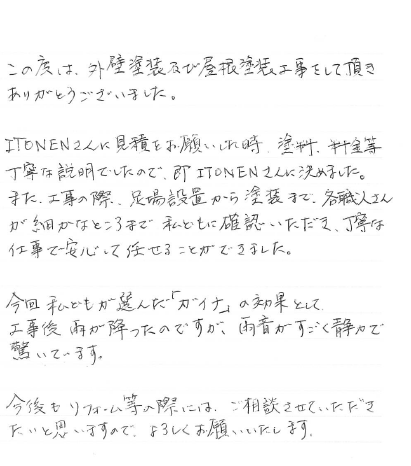 この度は、外壁塗装及び屋根塗装工事をして頂き
ありがとうございました。
ITONENさんに見積をお願いした時、塗料、料金等
丁寧な説明でしたので、即ITONENさんに決めました。
また、工事の際、足場設置から塗装まで、各職人さん
が細かなところまで私どもに確認いただき、丁寧な
仕事で安心して任せることができました。
今回私どもが選んだ「ガイナ」の効果として
工事後雨が降ったのですが、雨音がすごく静かで
驚いています。
今後もリフォーム等の際には、ご相談させていただき
たいと思いますので、よろしくお願いいたします。